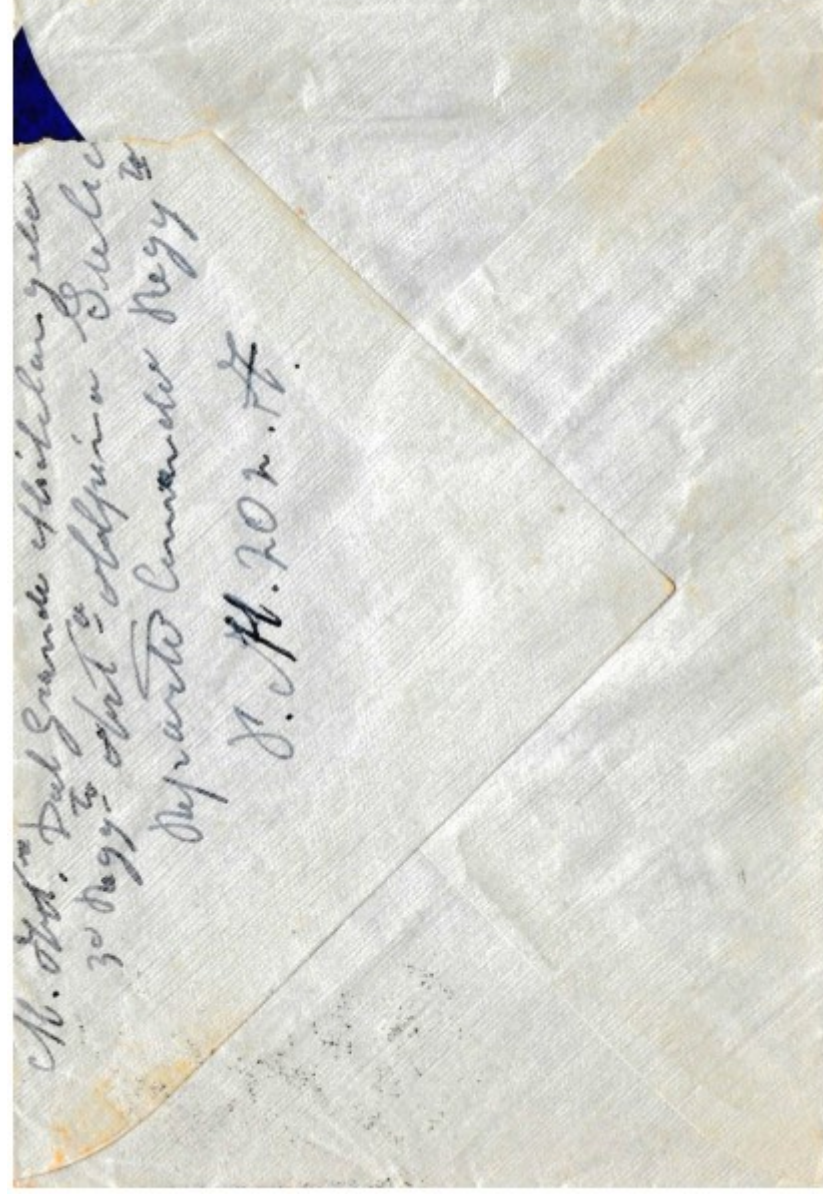 M. Art.re Dal Grande Michelangelo
3º Regg.to Art.a Alpina Julia
Reparto Comando Regg.to
P. M. 202. A.